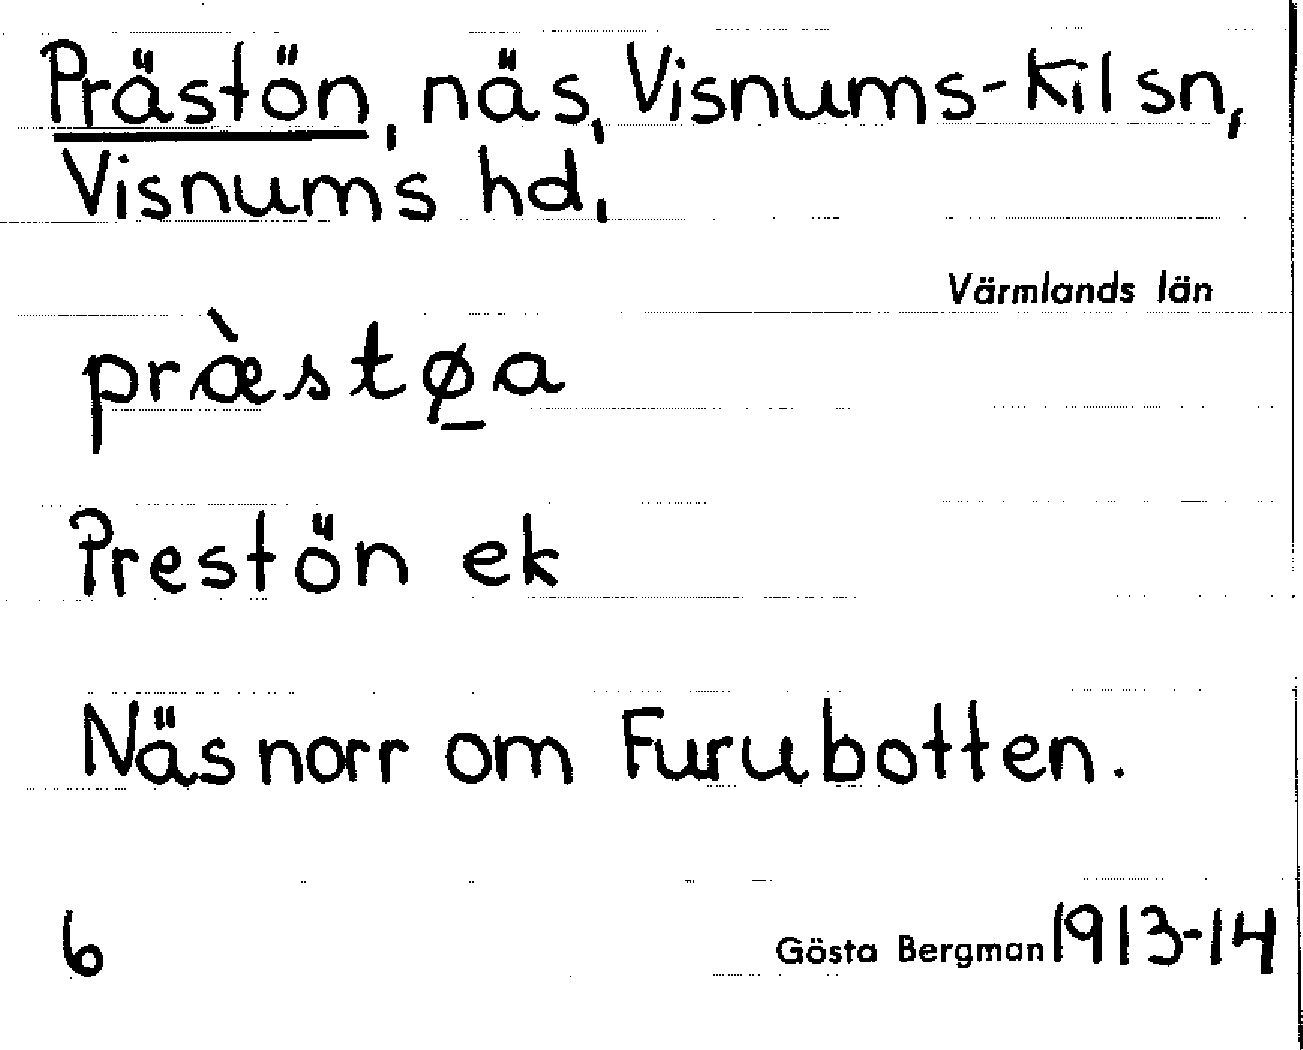 Prästön, näs, Visnums-Kil sn,
Visnums hd,
Värmlands län
præ̀stø̠a
Prestön ek
Näs norr om Furubotten.
6
Gösta Bergman 1913-14